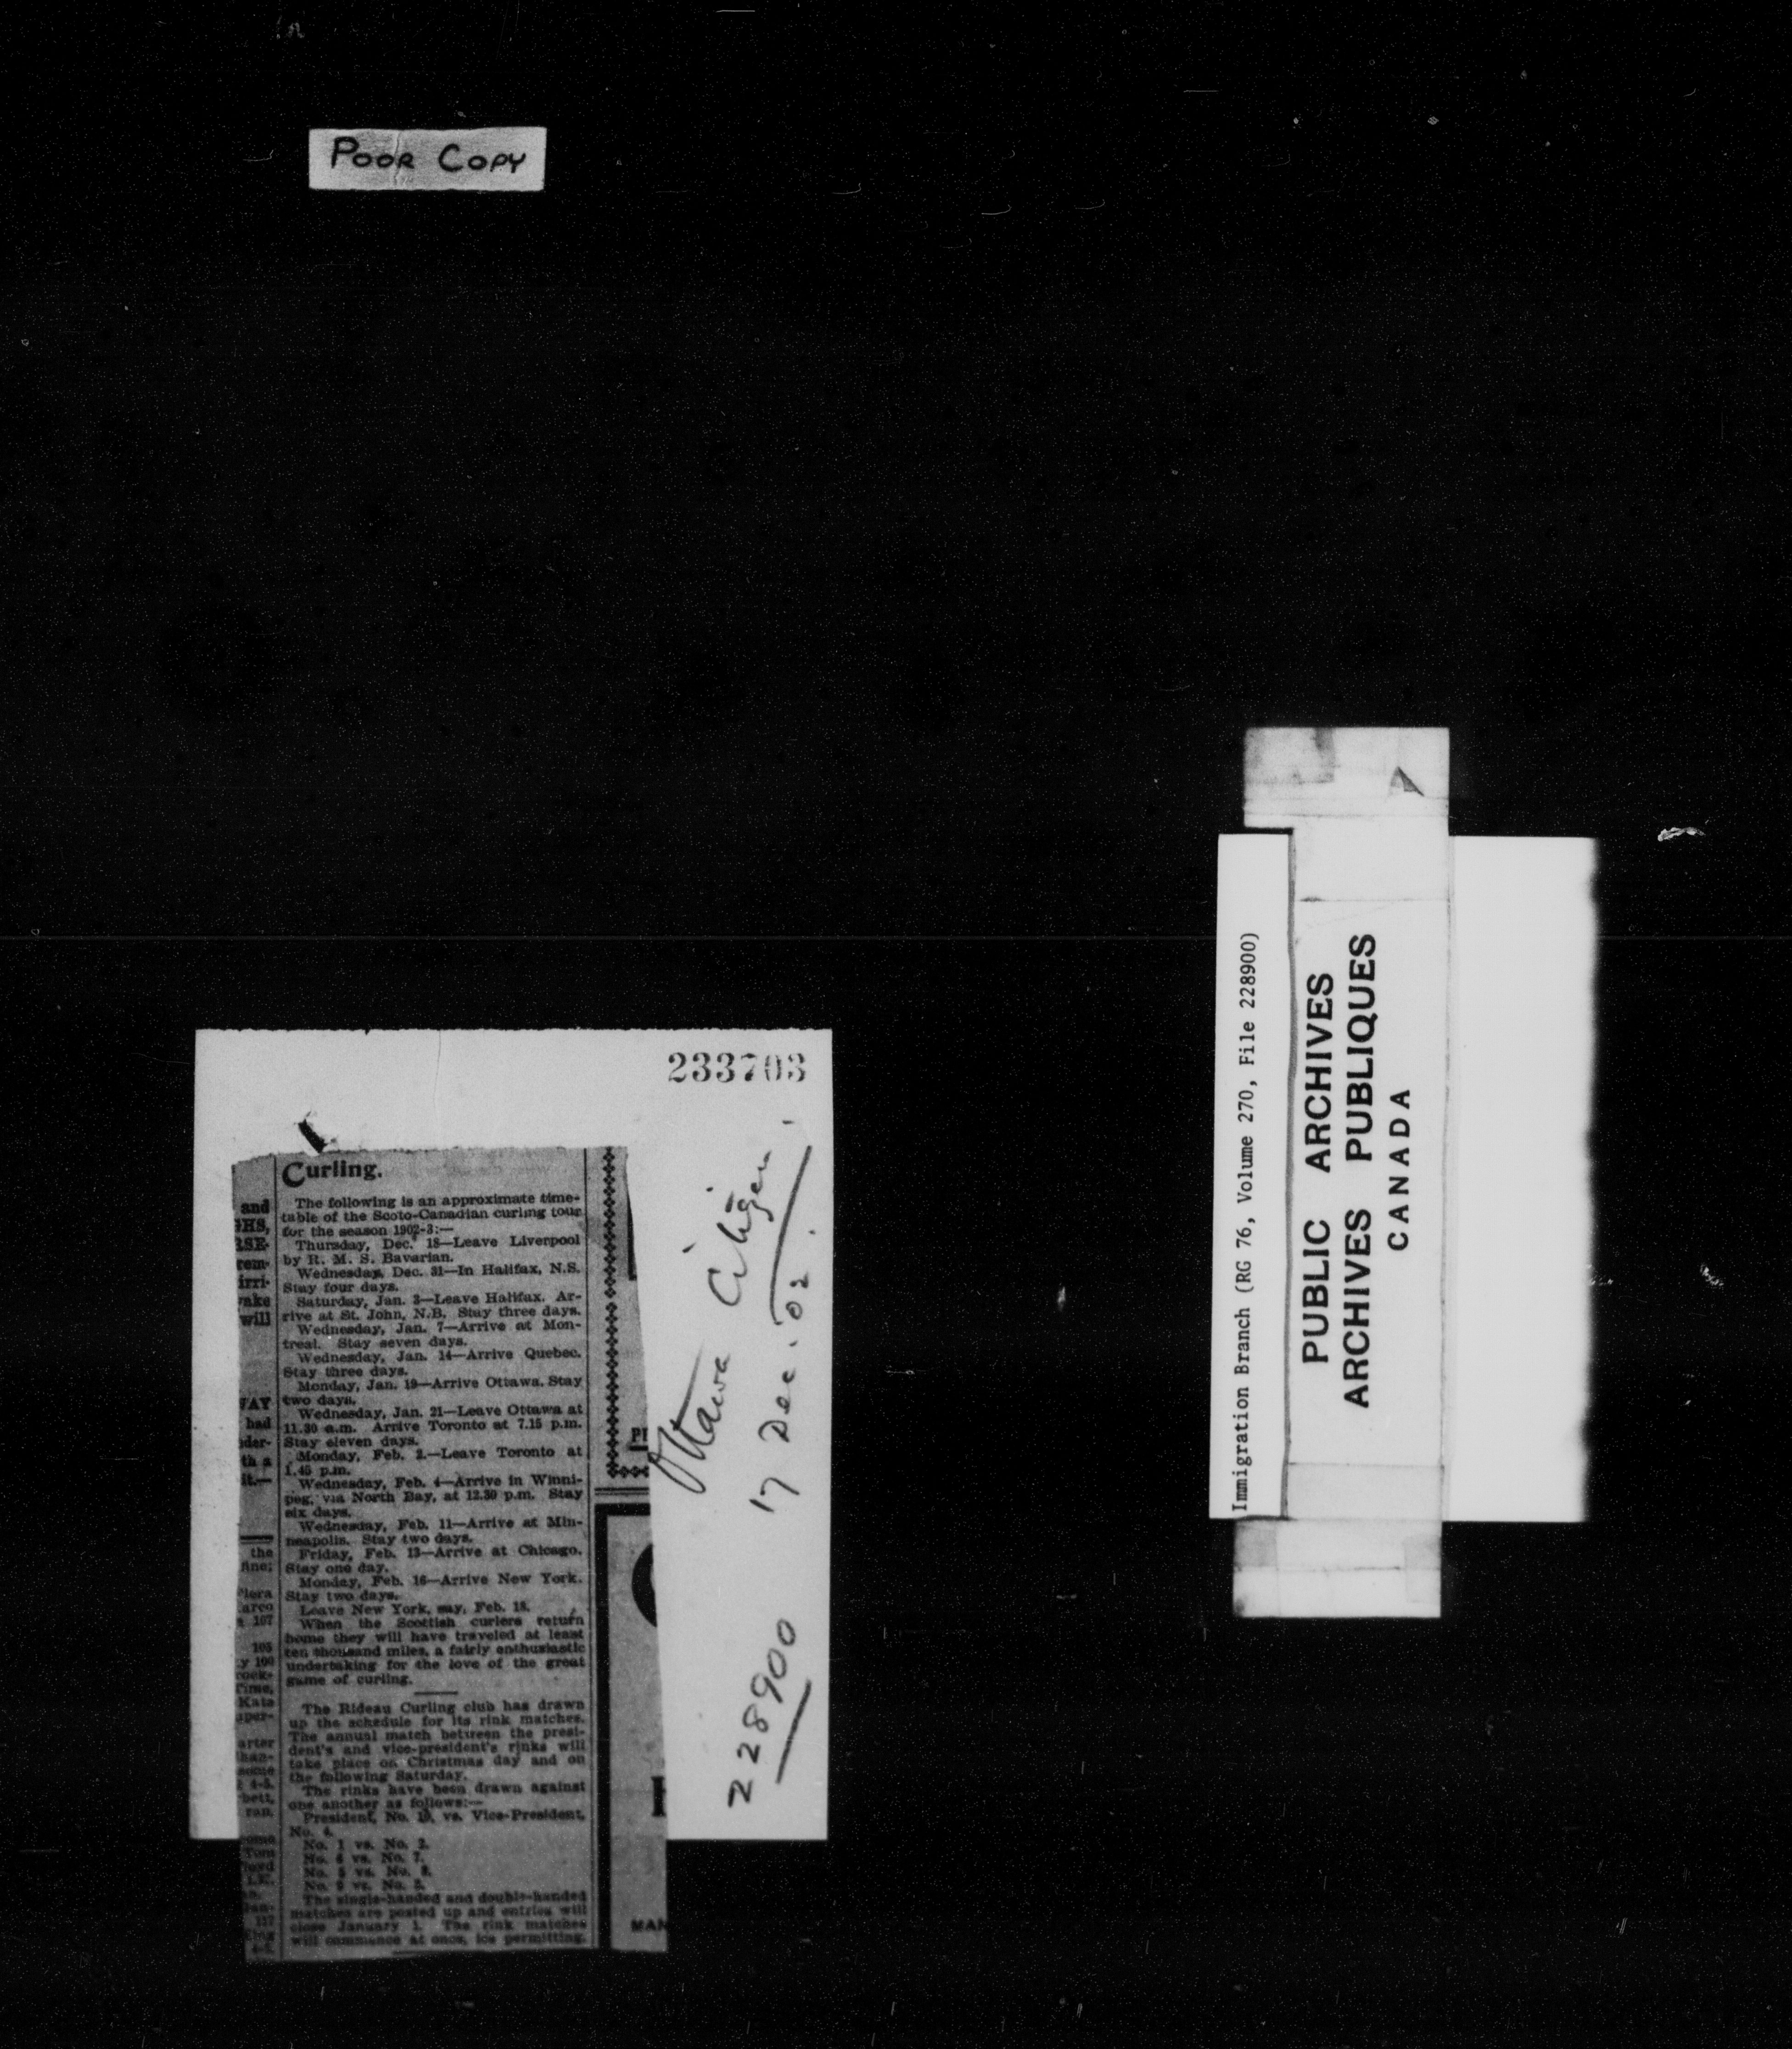 POOR COPY
233703
Curling.
The following is an approximate time-
table of the Scoto-Canadian curling tour
for the season 1902-3:—
Thursday, Dec. 18—Leave Liverpool
by R. M. S. Bavarian.
Wednesday, Dec. 31—In Halifax, N.S.
Stay four days.
Saturday, Jan. 3—Leave Halifax. Ar-
rive at St. John, N.B. Stay three days.
Wednesday, Jan. 7—Arrive at Mon-
treal. Stay seven days.
Wednesday, Jan. 14—Arrive Quebec.
Stay three days.
Monday, Jan. 19—Arrive Ottawa. Stay
two days.
Wednesday, Jan. 21—Leave Ottawa at
11.30 a.m. Arrive Toronto at 7.15 p.m.
Stay eleven days.
Monday, Feb. 2.—Leave Toronto at
1.45 p.m.
Wednesday, Feb. 4—Arrive in Winni-
peg, via North Bay, at 12.30 p.m. Stay
six days.
Wednesday, Feb. 11—Arrive at Min-
neapolis. Stay two days.
Friday, Feb. 13—Arrive at Chicago.
Stay one day.
Monday, Feb. 16—Arrive New York.
Stay two days.
Leave New York, say, Feb. 18.
When the Scottish curlers return
home they will have traveled at least
ten thousand miles, a fairly enthusiastic
undertaking for the love of the great
game of curling.
The Rideau Curling club has drawn
up the schedule for its rink matches.
The annual match between the presi-
dent's and vice-president's rinks will
take place on Christmas day and on
the following Saturday.
The rinks have been drawn against
one another as follows:—
President, No. 10, vs. Vice-President,
No. 4.
No. 1 vs. No. 2.
No. 6 vs. No. 7.
No. 5 vs. No. 8.
No. 9 vs. No. 3.
The single-handed and double-handed
matches are posted up and entries will
close January 1. The rink matches
will commence at once, ice permitting.
and
GHS,
RSE-
rem-
irri-
rake
will
WAY
had
nder-
th a
it.—
the
fine;
arco
107
105
y 100
rock-
Time,
Kate
arter
some
4-5.
bett,
ran.
Tom
117
King
4-5.
MAN
Ottawa Citizen.
17 Dec. 02.
228900
Immigration Branch (RG 76, Volume 270, File 228900)
PUBLIC ARCHIVES
ARCHIVES PUBLIQUES
CANADA